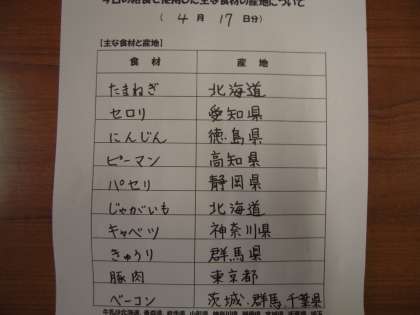 今日の給食で使用した主な食材の産地について
( 4 月 17 日分)
【主な食材と産地】
食材 産地
たまねぎ 北海道
セロリ 愛知県
にんじん 徳島県
ピーマン 高知県
パセリ 静岡県
じゃがいも 北海道
キャベツ 神奈川県
きゅうり 群馬県
豚肉 東京都
ベーコン 茨城、群馬、千葉県